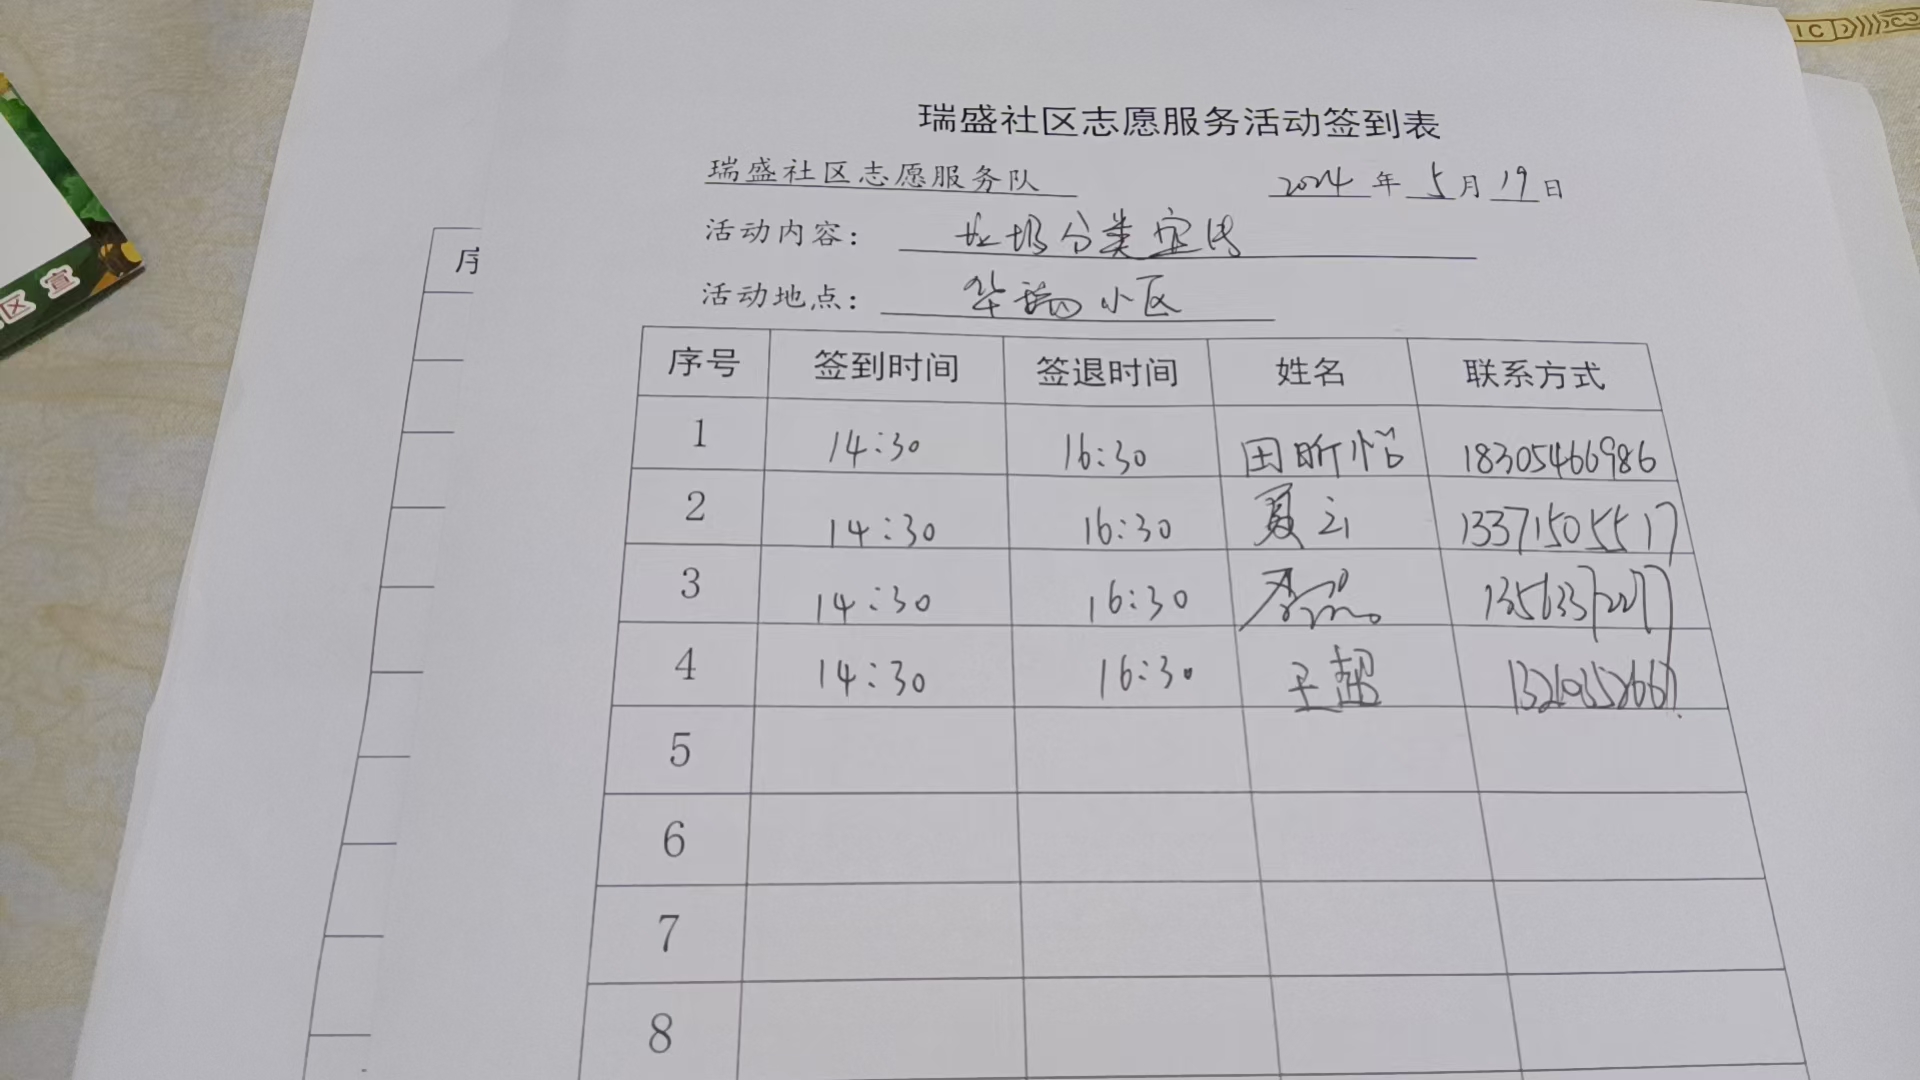 瑞盛社区志愿服务活动签到表
瑞盛社区志愿服务队 2024年5月19日
活动内容： 垃圾分类宣传
活动地点： 华瑞小区
序号 签到时间 签退时间 姓名 联系方式
1 14:30 16:30 田昕怡 18305466986
2 14:30 16:30 夏云 13371505517
3 14:30 16:30
4 14:30 16:30 王超
5
6
7
8
序
区宣